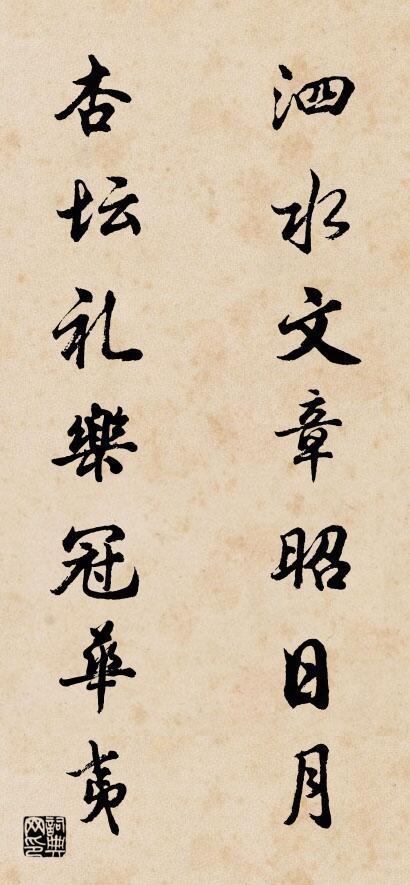 泗水文章昭日月
杏坛礼樂冠華夷
詞典网印